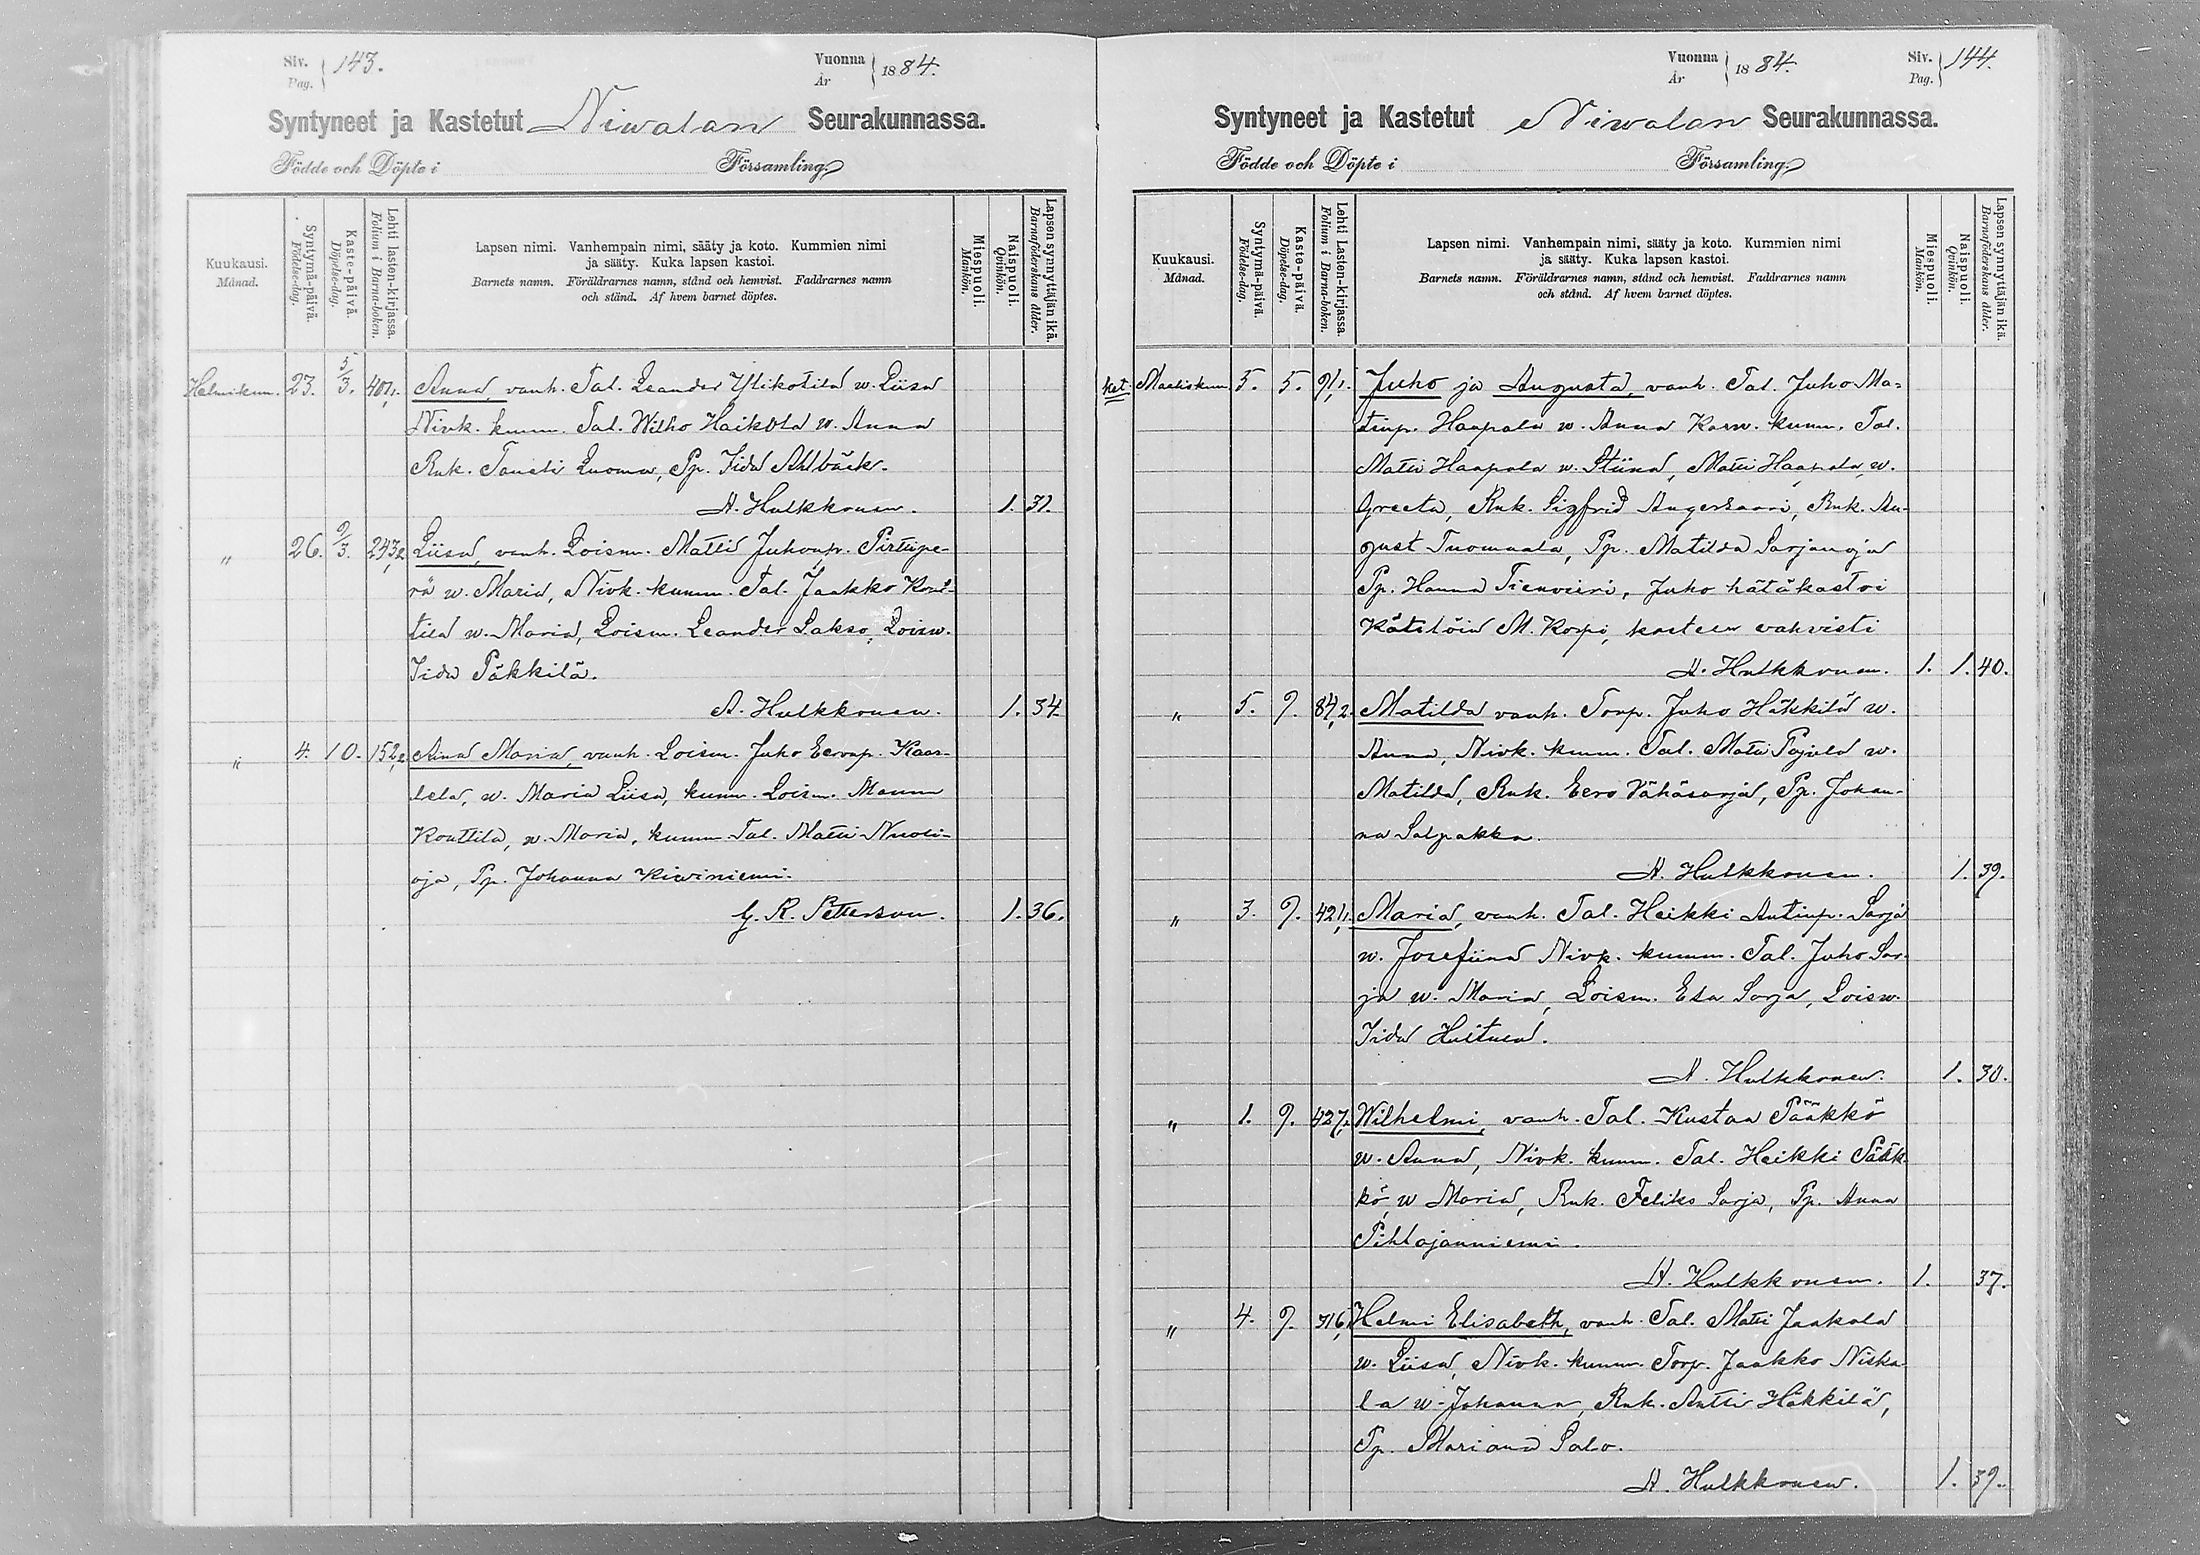 Siv. Pag. 143.
Vuonna År 1884.
Syntyneet ja Kastetut Niwalan Seurakunnassa.
Födde och Döpte i Församling.
Kuukausi. Månad.
Syntymä-päivä. Födelse-dag.
Kaste-päivä. Döpelse-dag.
Lehti lasten-kirjassa. Folium i Barna-boken.
Lapsen nimi. Vanhempain nimi, sääty ja koto. Kummien nimi
ja sääty. Kuka lapsen kastoi.
Barnets namn. Föräldrarnes namn, stånd och hemvist. Faddrarnes namn
och stånd. Af hvem barnet döptes.
Miespuoli. Mankön.
Naispuoli. Qvinkön.
Lapsen synnyttäjän ikä. Barnaföderskans ålder.
Helmikuu. 23. 5/3. 407,1. Anna vanh. Tal. Leander Ylikotila w. Liisa
Nivk. kumm. Tal. Wilho Haikola w. Anna
Rnk. Taneli Luoma, Pp. Iida Ahlbäck.
A. Hulkkonen. 1. 31.
" 26. 9/3. 243,2. Liisa, vanh. Loism. Matti Juhonp. Pirttipe-
rä w. Maria, Nivk. kumm. Tal. Jaakko Kout-
tila w. Maria, Loism. Leander Sakso, Loisw.
Iida Päkkilä.
A. Hulkkonen. 1. 34.
" 4. 10. 152,2. Aina Maria, vanh. Loism. Juho Eerop. Kaar-
lela, w. Maria Liisa, kumm. Loism. Manu
Kouttila, w. Maria, kumm. Tal. Matti Nuoli-
oja, Pp. Johanna Kiviniemi.
G. R. Petterson. 1. 36.
Vuonna År 1884.
Siv. Pag. 144.
Syntyneet ja Kastetut Niwalan Seurakunnassa.
Födde och Döpte i Församling.
Kuukausi. Månad.
Syntymä-päivä. Födelse-dag.
Kaste-päivä. Döpelse-dag.
Lehti Lasten-kirjassa. Folium i Barna-boken.
Lapsen nimi. Vanhempain nimi, sääty ja koto. Kummien nimi
ja sääty. Kuka lapsen kastoi.
Barnets namn. Föräldrarnes namn, stånd och hemvist. Faddrarnes namn
och stånd. Af hvem barnet döptes.
Miespuoli. Mankön.
Naispuoli. Qvinkön.
Lapsen synnyttäjän ikä. Barnaföderskans ålder.
Maaliskuu 5. 5. 91,1. Juho ja Augusta, vanh. Tal. Juho Ma-
tinp. Haapala w. Anna Karw. kumm. Tal.
Matti Haapala w. Stiina, Matti Haapala, w.
Greeta, Rnk. Sigfrid Angerkaari, Rnk. Au-
gust Tuomaala, Pp. Matilda Sarjanoja
Pp. Hanna Tienviiri, Juho hätäkastoi
Kätilöin M. Korpi, kasteen vahvisti
A. Hulkkonen. 1. 1. 40.
" 5. 9. 84,2. Matilda vanh. Torp. Juho Häkkilä w.
Anna, Nivk. kumm. Tal. Matti Pajula w.
Matilda, Rnk. Eero Vähäsarja, Pp. Johan-
na Salpakka.
A. Hulkkonen. 1. 39.
" 3. 9. 421,1. Maria, vanh. Tal. Heikki Antinp. Sarja
w. Josefiina Nivk. kumm. Tal. Juho Sar-
ja w. Maria, Loism. Esa Sarja, Loisw.
Iida Hultula.
A. Hulkkonen. 1. 30.
" 1. 9. 427, Wilhelmi, vanh. Tal. Kustaa Pääkkö
w. Anna, Nivk. kumm. Tal. Heikki Pääk-
kö, w Maria, Rnk. Feliks Sarja, Pp. Anna
Pihlajanniemi.
A. Hulkkonen. 1. 37.
" 4. 9. Helmi Elisabeth, vanh. Tal. Matti Jaakola
w. Liisa, Nivk. kumm. Torp. Jaakko Niska-
la w. Johanna, Rnk. Antti Häkkilä,
Pp. Mariana Salo.
A. Hulkkonen. 1. 39.